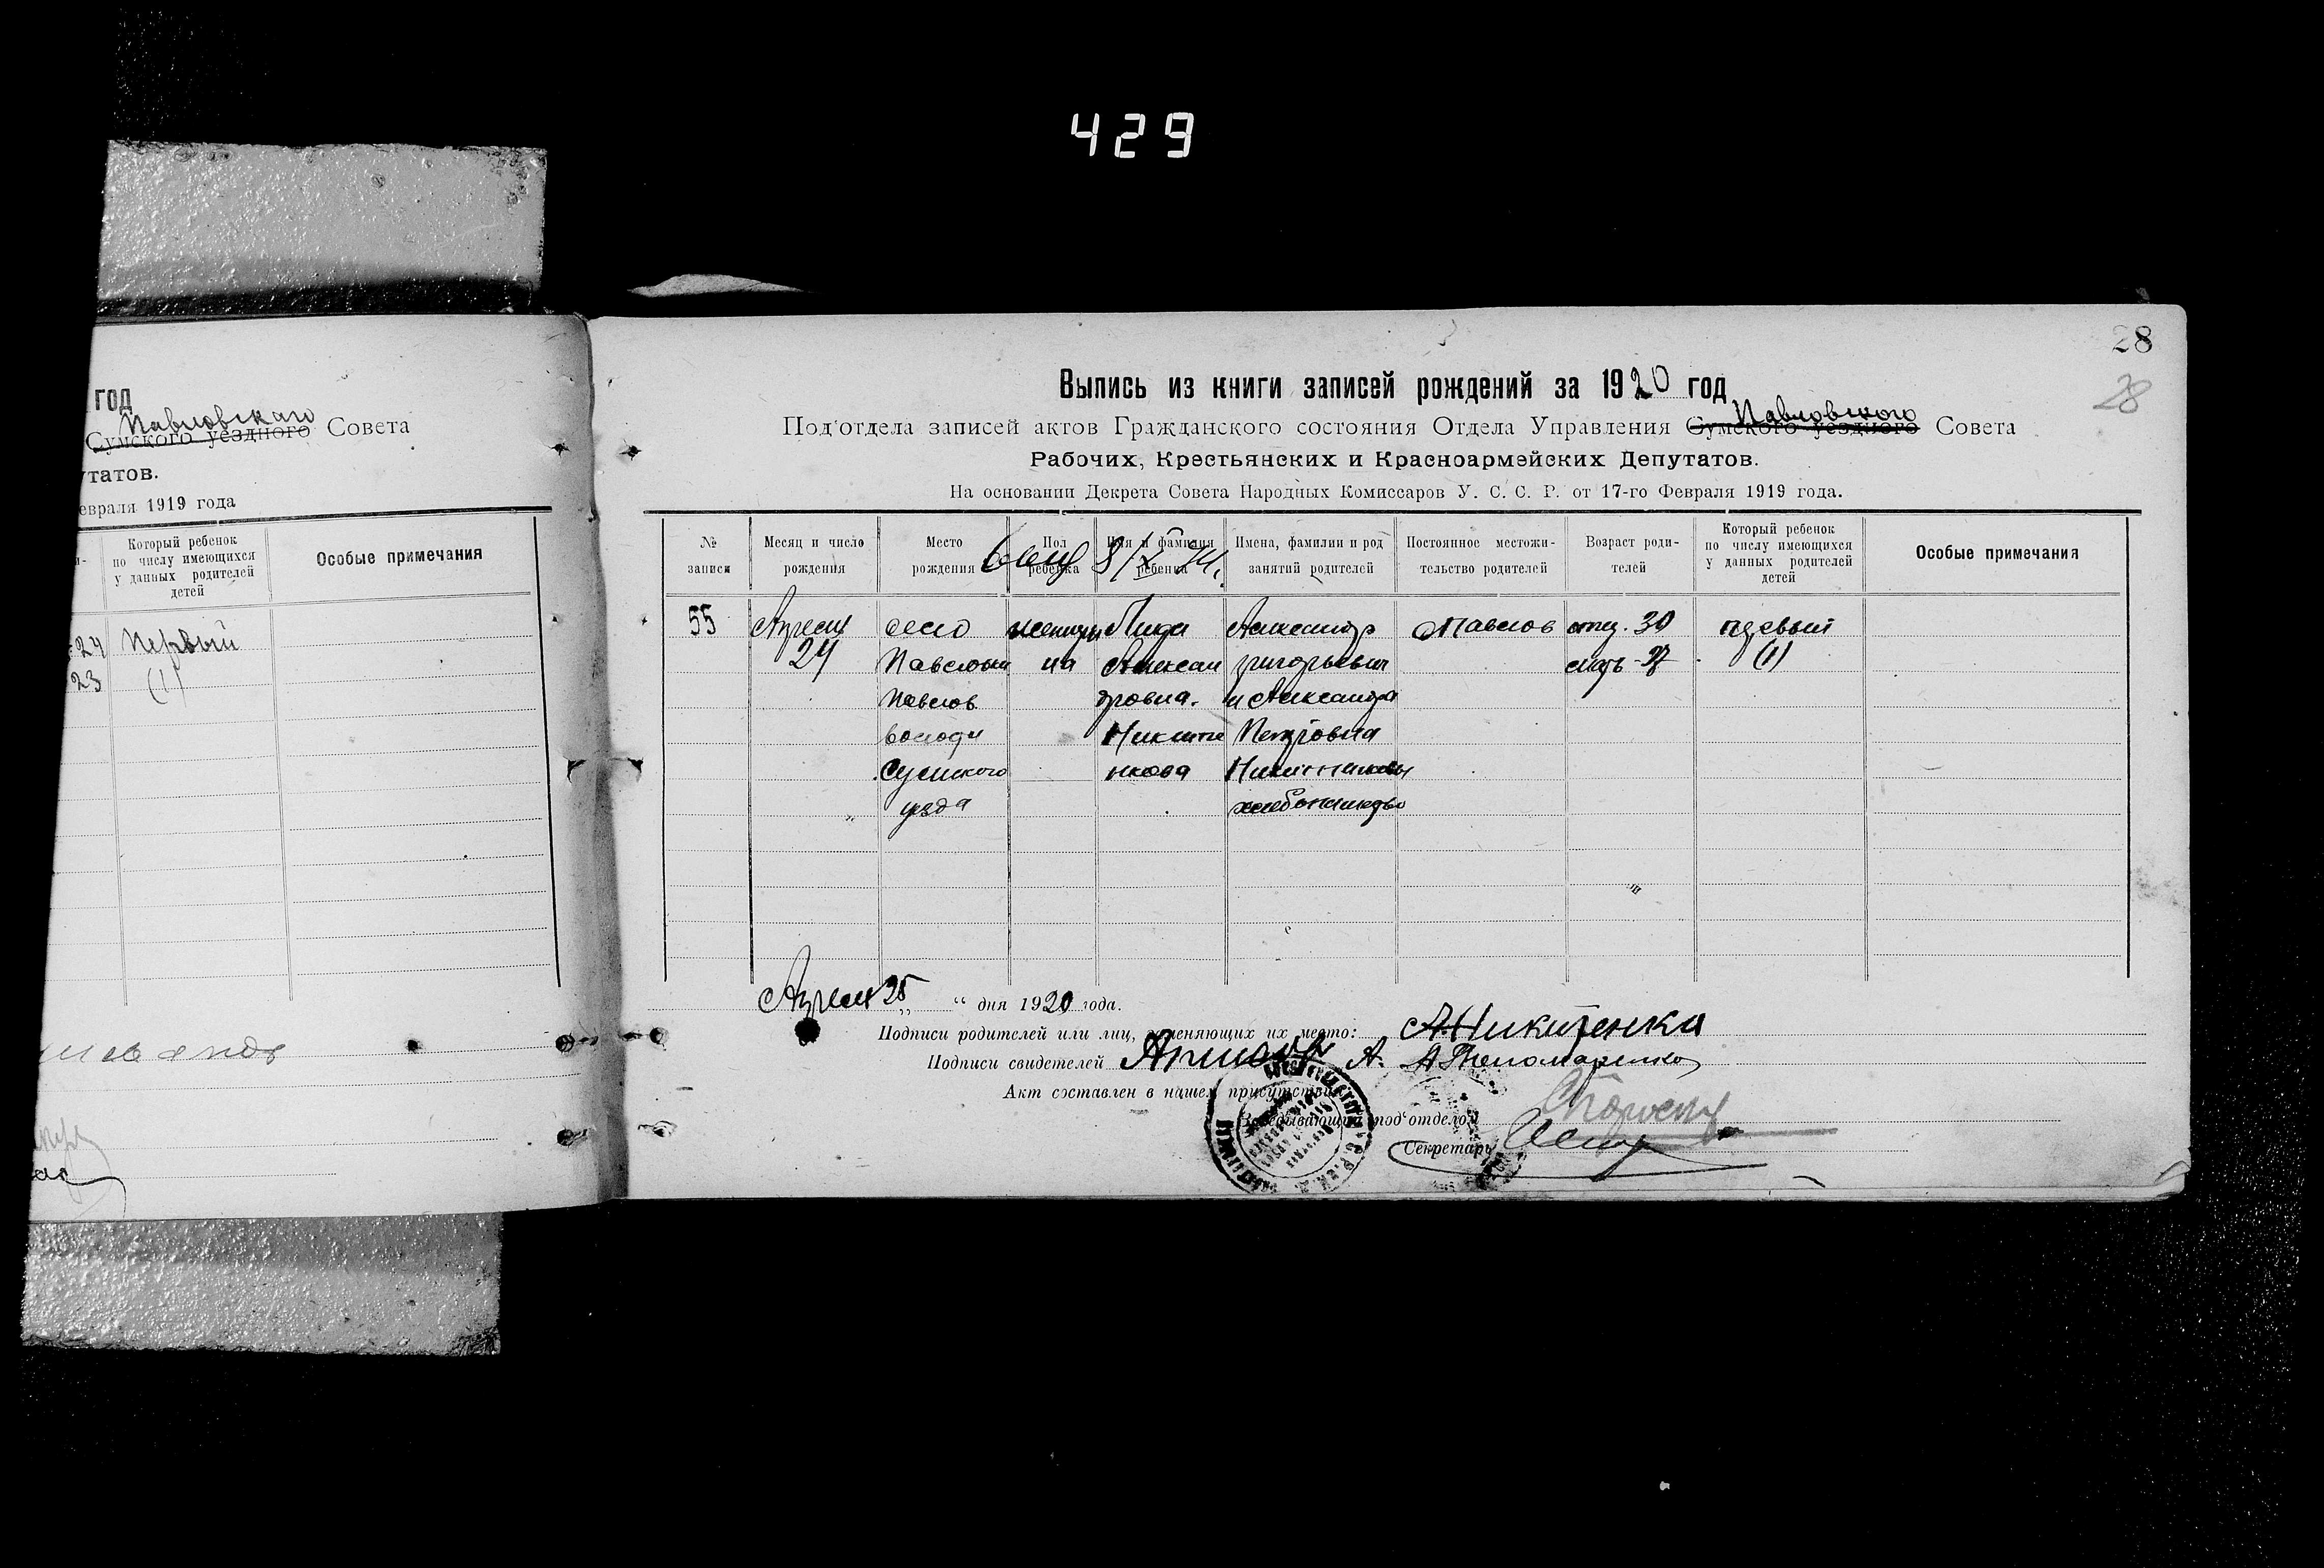 429
год
Павловскаго
Сумского уездного Совета
утатов.
евраля 1919 года
Который ребенок
по числу имеющихся
у данных родителей
детей
Особые примечания
24 Первый
23 (1)
28
28
Выпись из книги записей рождений за 1920 год
Павловского
Под‘отдела записей актов Гражданского состояния Отдела Управления Сумского уездного Совета
Рабочих, Крестьянских и Красноармейских Депутатов.
На основании Декрета Совета Народных Комиссаров У. С. С. Р. от 17-го Февраля 1919 года.
№ записи
Месяц и число рождения
Место рождения
Пол ребенка
Имя и фамилия ребенка
Имена, фамилии и род занятий родителей
Постоянное местожи-тельство родителей
Возраст роди-телей
Который ребенок по числу имеющихся у данных родителей детей
Особые примечания
55 Апреля село женщи Лида Александр Павлов отец. 30 первый
24 Павловки на Алексан григорьевич мать - (1)
Павлов дровна. и Александра
волости Никите Петровна
Сумского нкова Никитенковы
уезда хлебопашцы
Апреля 25 “ дня 1920 года.
Подписи родителей или лиц, заменяющих их место: А.Никитенка
Подписи свидетелей А. Пономаренко
Акт составлен в нашем присутствии
Заведывающий под‘отделом
Секретарь